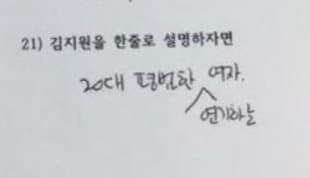 21) 김지원을 한줄로 설명하자면
20대 평범한 여자.
연기하는